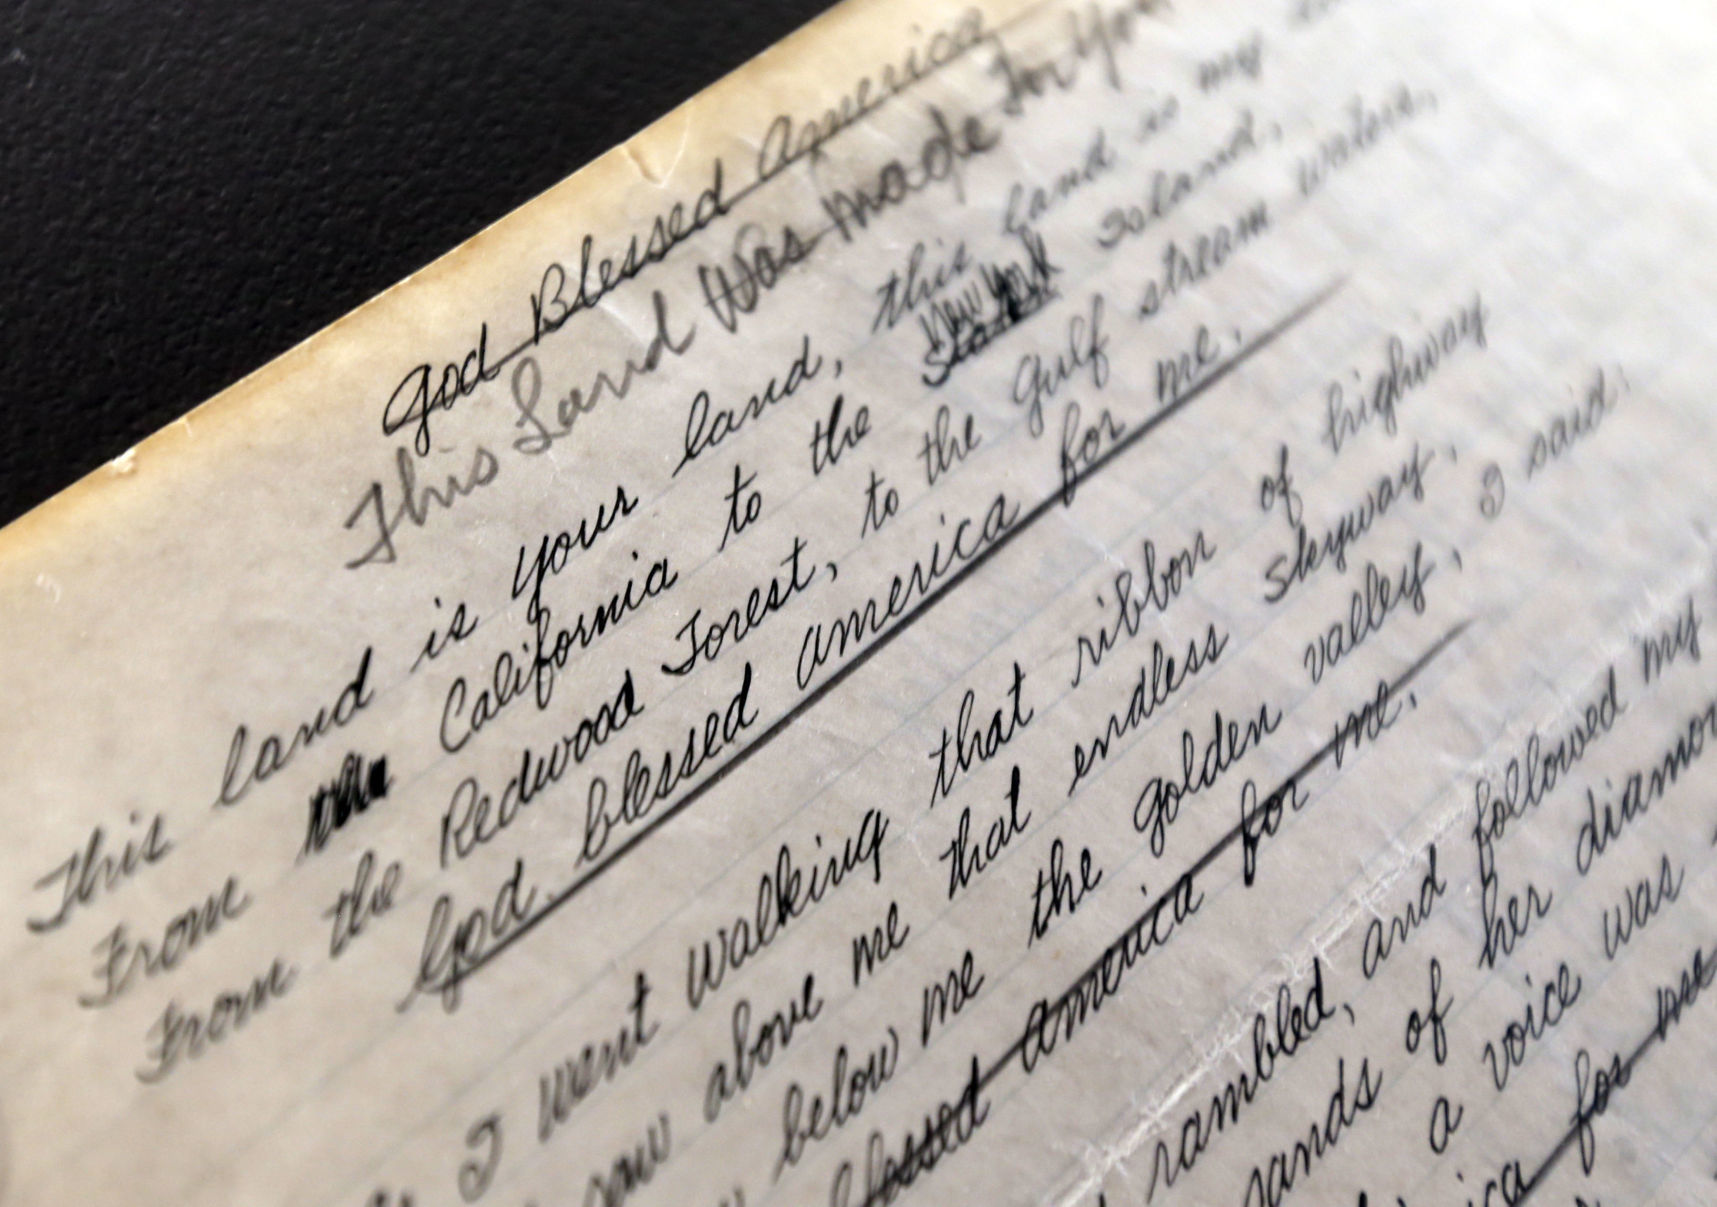 God Blessed America
This Land Was made For You
This land is your land, this land is my
From the California to the New York Island,
From the Redwood Forest, to the gulf stream waters,
God blessed america for me.
I went walking that ribbon of highway
saw above me that endless skyway,
below me the golden valley, I said:
blessed america for me.
rambled, and followed my
sands of her
a voice was
for me